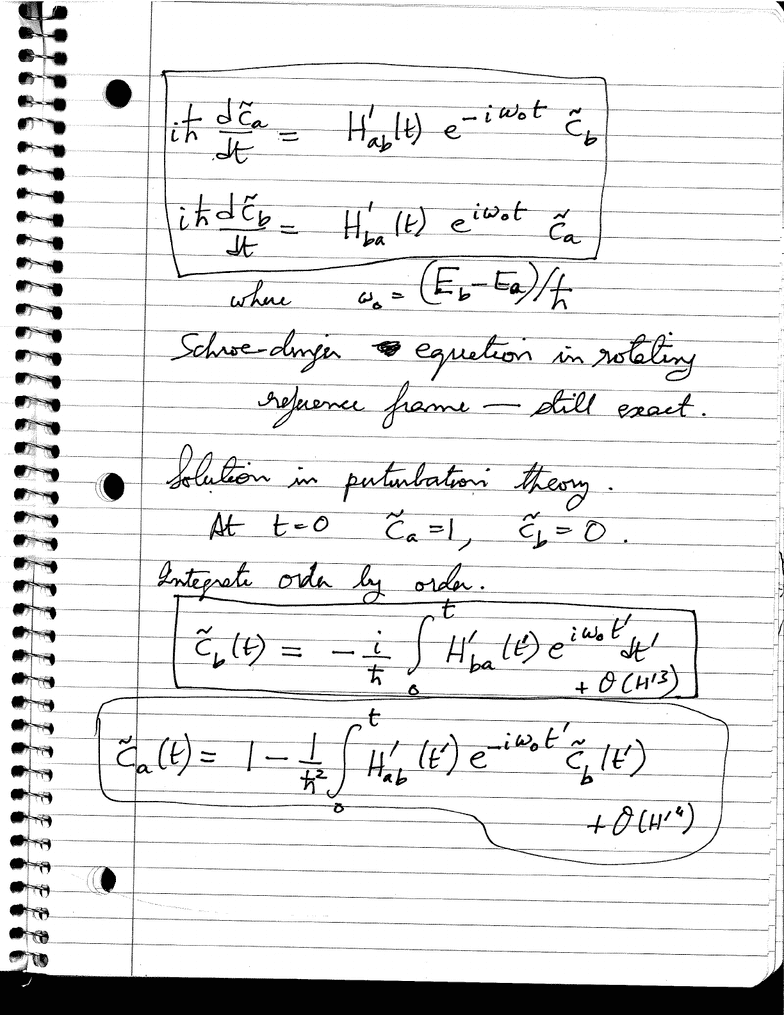 iħ dc̃a/dt = H'ab(t) e^{-iω₀t} c̃b
iħ dc̃b/dt = H'ba(t) e^{iω₀t} c̃a
where ω₀ = (Eb - Ea)/ħ
Schroe-dinger equation in rotating
reference frame — still exact.
Solution in perturbation theory.
At t=0 c̃a = 1, c̃b = 0.
Integrate order by order.
c̃b(t) = - i/ħ ∫₀^t H'ba(t') e^{iω₀t'} dt'
+ O(H'³)
c̃a(t) = 1 - 1/ħ² ∫₀^t H'ab(t') e^{-iω₀t'} c̃b(t')
+ O(H'⁴)